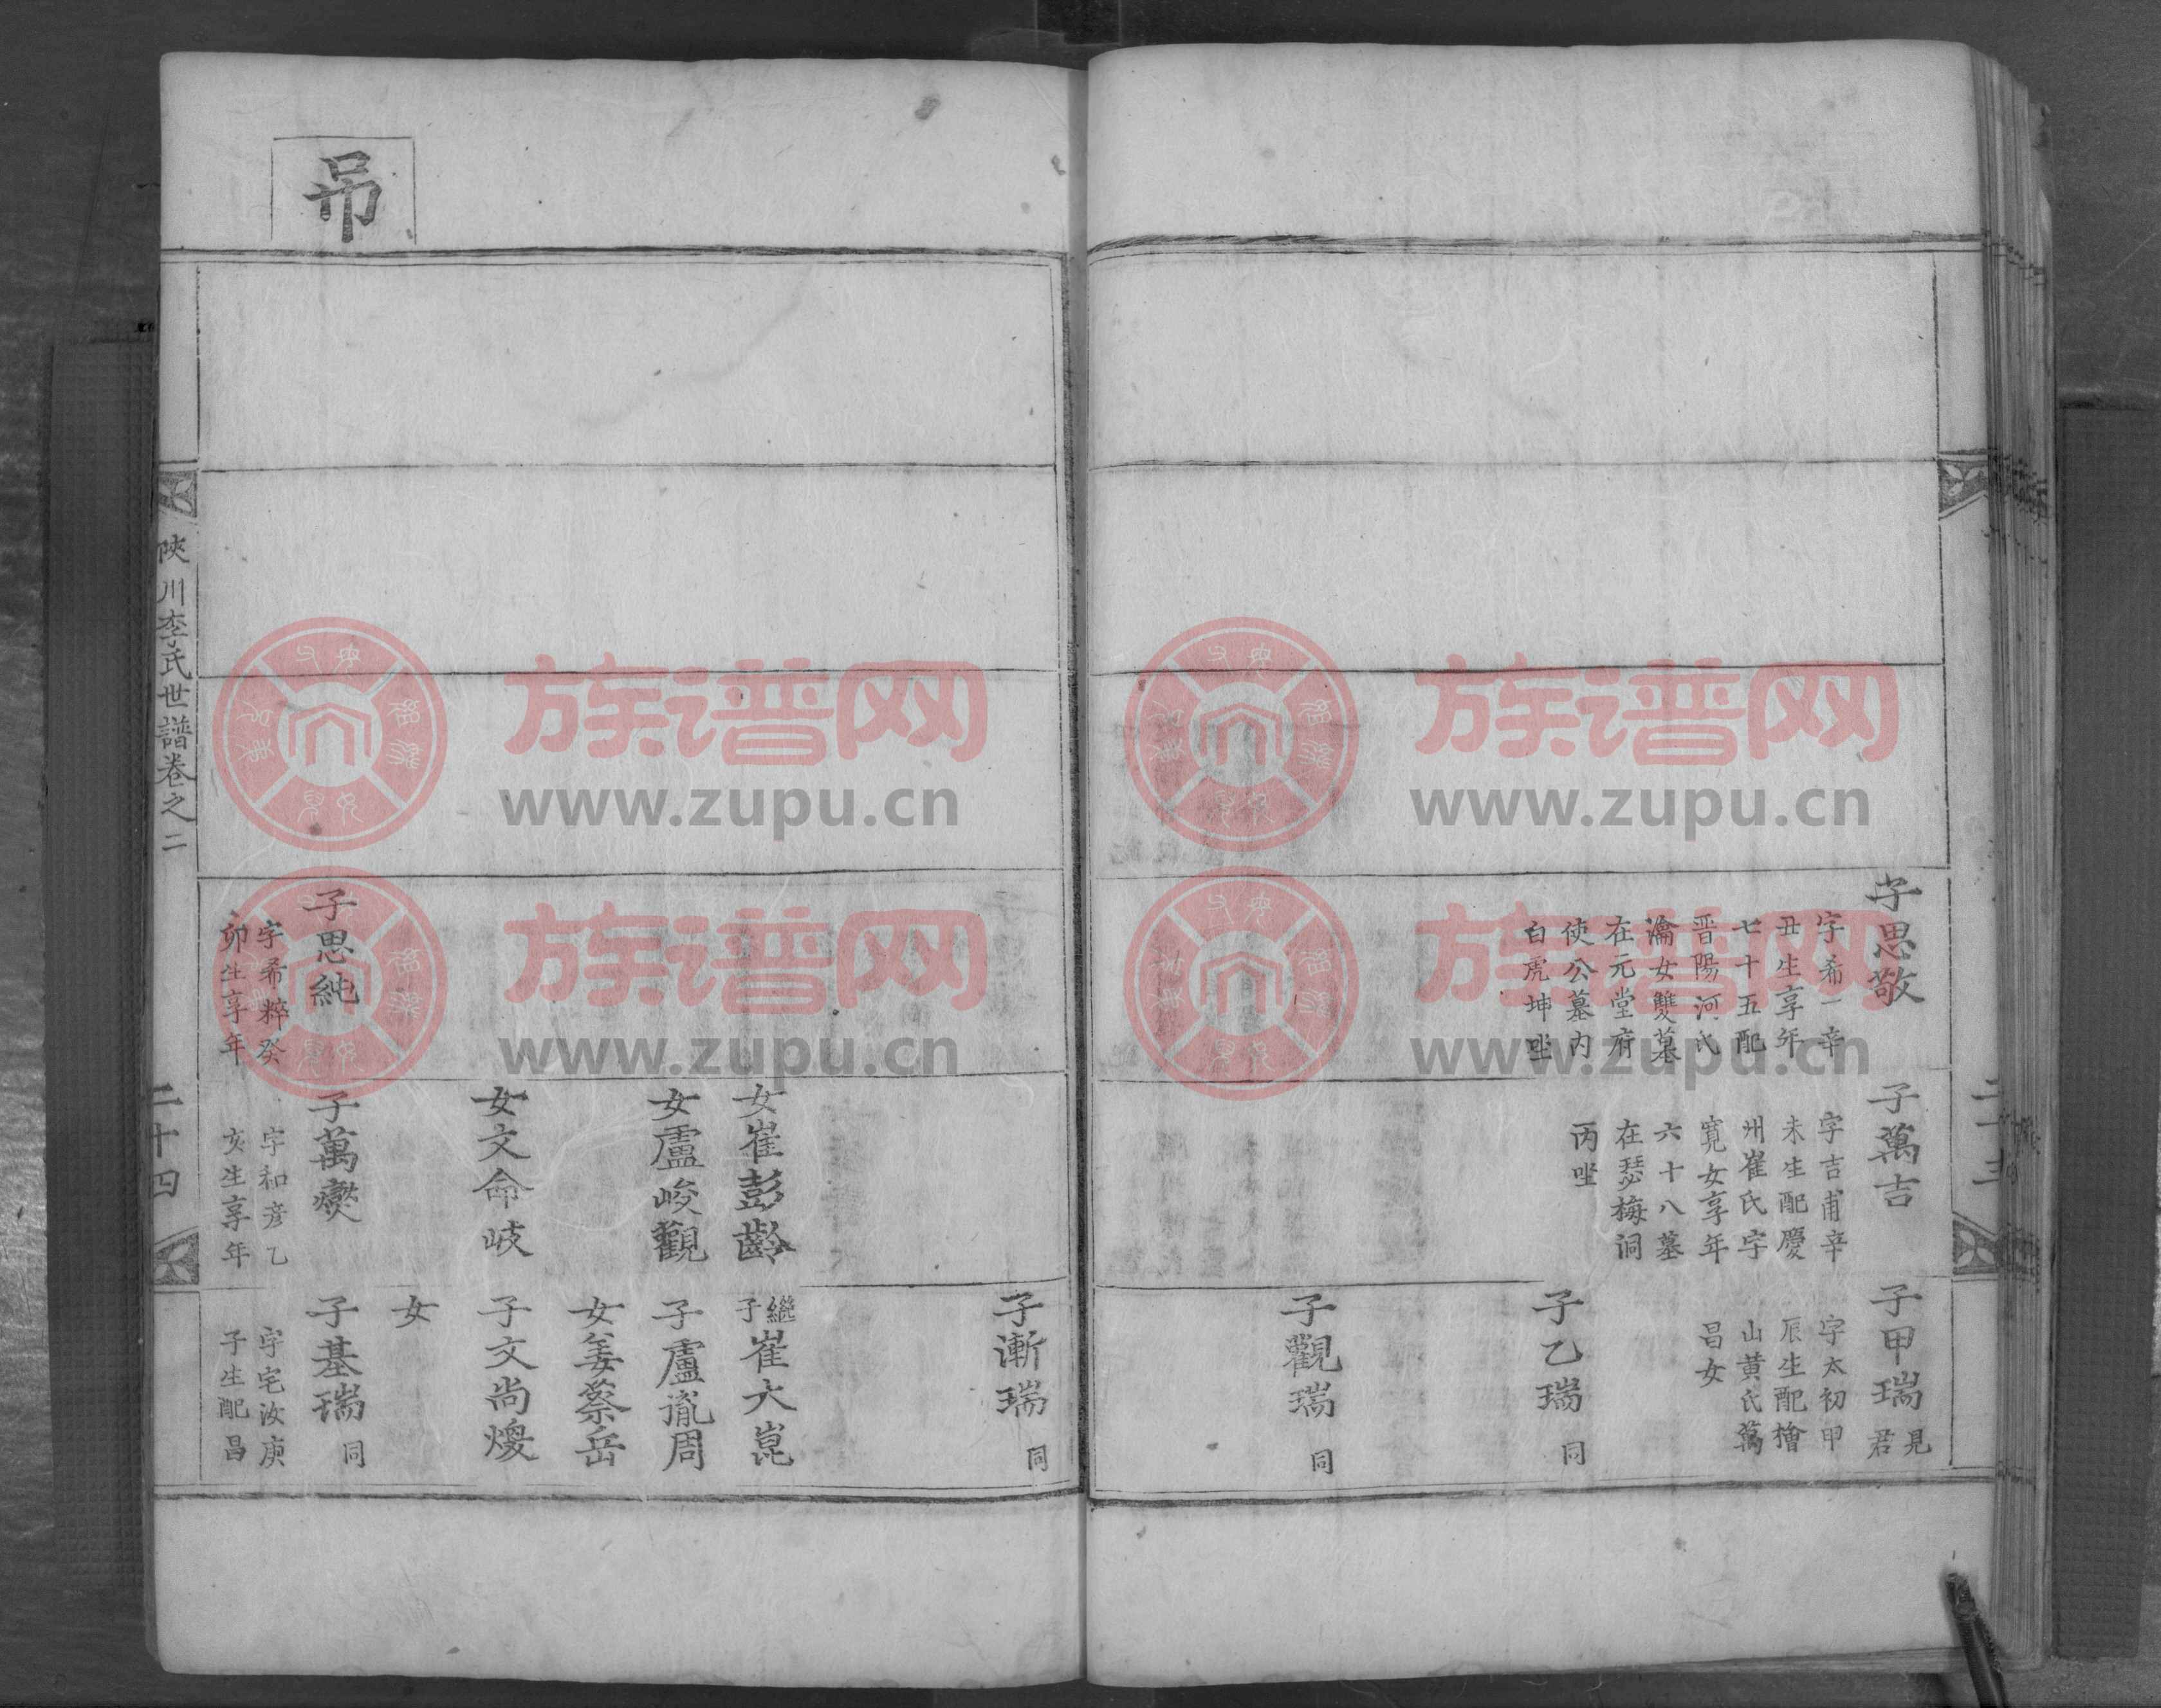 子思敬
字希一辛
丑生享年
七十五配
晋陽河氏
瀹女雙墓
在元堂府
使公墓内
白虎坤坐
子萬吉
字吉甫辛
未生配慶
州崔氏字
寬女享年
六十八墓
在瑟梅洞
丙坐
子甲瑞
見
君
字太初甲
辰生配檜
山黄氏萬
昌女
子乙瑞 同
子觀瑞 同
二十三
子漸瑞 同
女崔彭齡
繼子崔大崑
女盧峻觀
子盧胤周
女姜蔡岳
女文命岐
子文尚煥
女
吊
子思純
字希粹癸
卯生享年
子萬燮
字和彦乙
亥生享年
子基瑞 同
字宅汝庚
子生配昌
陜川李氏世譜卷之二
二十四
族谱网
www.zupu.cn
族谱网
www.zupu.cn
族谱网
www.zupu.cn
族谱网
www.zupu.cn